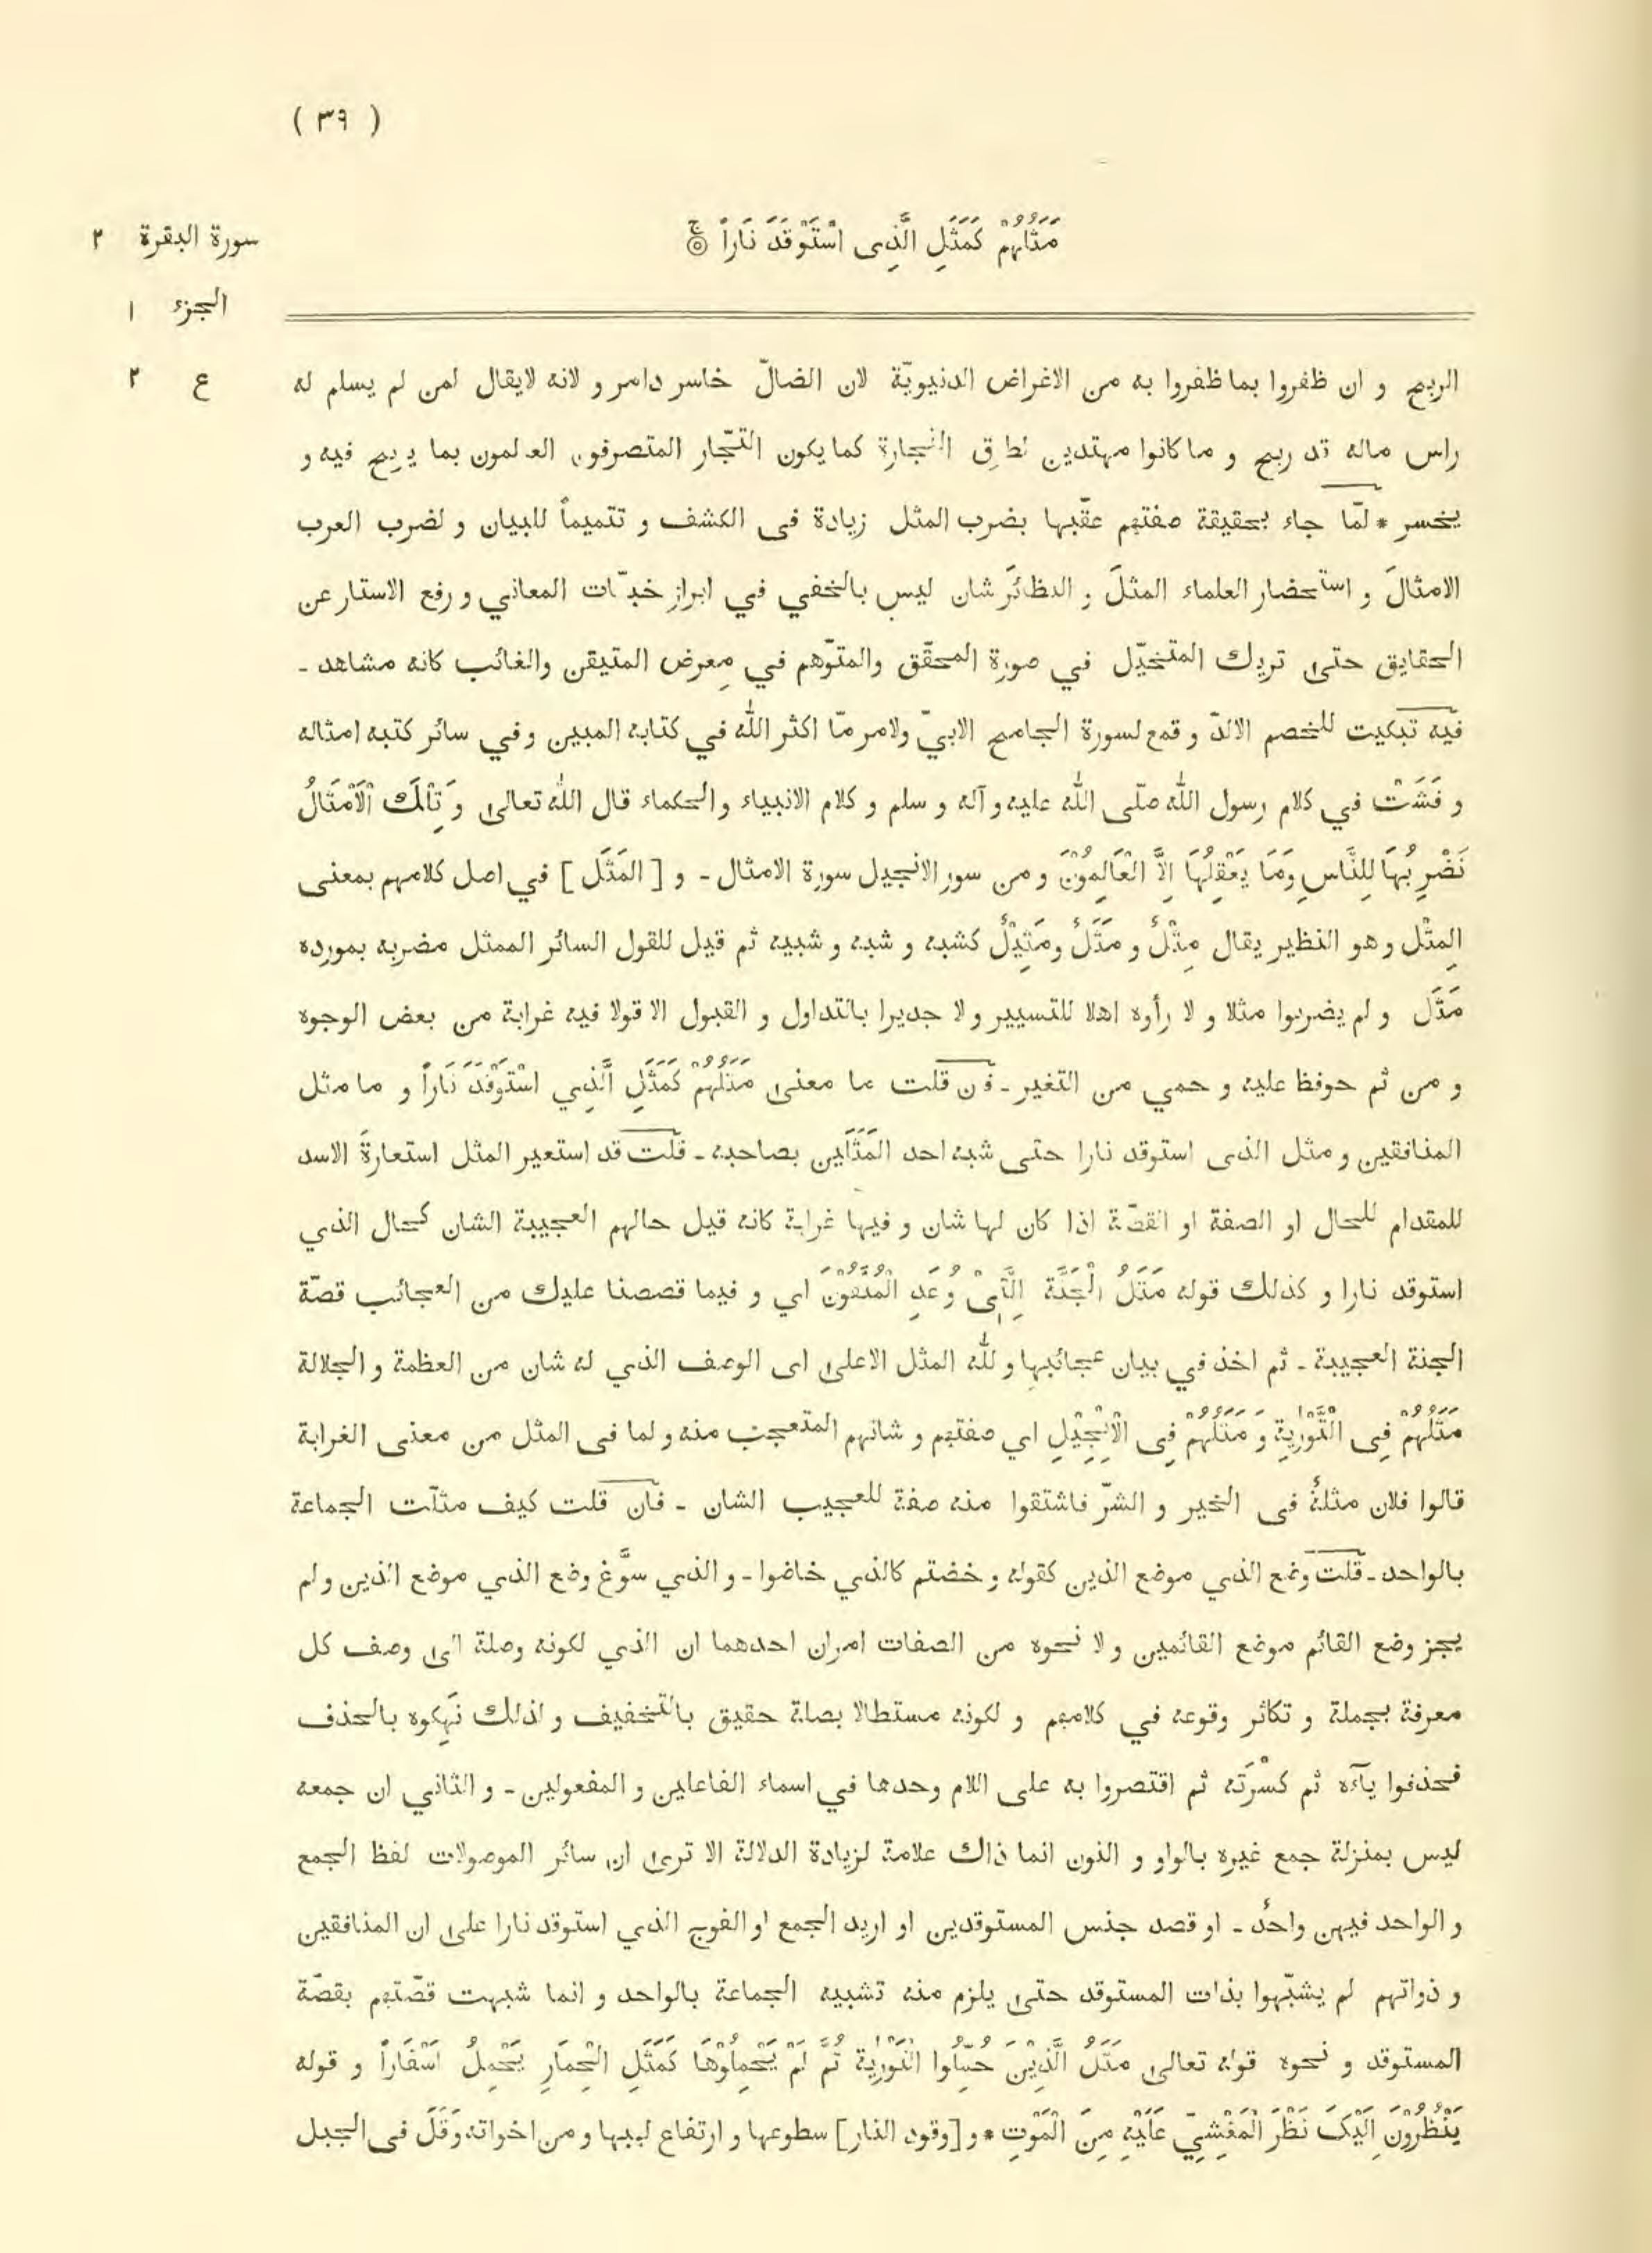 ( ٣٩ )
مَثَلُهُمْ كَمَثَلِ الَّذِى اسْتَوْقَدَ نَاراً ۚ ۝
سورة البقرة ٢
الجزء ١
ع ٢
الربح و ان ظفروا بما ظفروا به من الاغراض الدنيويّة لان الضالّ خاسر دامر و لانه لايقال لمن لم يسلم له
راس ماله قد ربح و ما كانوا مهتدين لطرق التجارة كما يكون التجّار المتصرفون العالمون بما يربح فيه و
يخسر * لمّا جاء بحقيقة صفتهم عقّبها بضرب المثل زيادة فى الكشف و تتميماً للبيان و لضرب العرب
الامثالَ و استحضار العلماء المثلَ و النظائرَ شان ليس بالخفي في ابراز خبيّات المعاني و رفع الاستار عن
الحقايق حتى تريك المتخيّل في صورة المحقّق والمتوّهم في مِعرض المتيقن والغائب كانه مشاهد ـ
فيه تبكيت للخصم الالدّ و قمع لسورة الجامح الابيّ ولامر مّا اكثر الله في كتابه المبين وفي سائر كتبه امثاله
و فَشَتْ في كلام رسول الله صلّى الله عليه و آله و سلم و كلام الانبياء والحكماء قال الله تعالى وَتِلْكَ الْاَمْثَالُ
نَضْرِبُهَا لِلنَّاسِ وَمَا يَعْقِلُهَا اِلَّا الْعَالِمُوْنَ و من سور الانجيل سورة الامثال ـ و [ المَثَل ] في اصل كلامهم بمعنى
المِثْل و هو النظير يقال مِثْلٌ و مَثَلٌ ومَثِيْلٌ كشبه و شبه و شبيه ثم قيل للقول السائر الممثل مضربه بمورده
مَثَل و لم يضربوا مثلا و لا رأوه اهلا للتسيير و لا جديرا بالتداول و القبول الا قولا فيه غرابة من بعض الوجوه
و من ثم حوفظ عليه و حمي من التغير ـ فان قلت ما معنى مَثَلُهُمْ كَمَثَلِ الَّذِي اسْتَوْقَدَ نَاراً و ما مثل
المنافقين و مثل الذى استوقد نارا حتى شبه احد المَثَلَين بصاحبه ـ قلت قد استعير المثل استعارةَ الاسد
للمقدام للحال او الصفة او القصّة اذا كان لها شان و فيها غرابة كانه قيل حالهم العجيبة الشان كحال الذي
استوقد نارا و كذلك قوله مَثَلُ الْجَنَّة الَّتِىْ وُعِدَ الْمُتَّقُوْنَ اي و فيما قصصنا عليك من العجائب قصّة
الجنة العجيبة ـ ثم اخذ في بيان عجائبها و لله المثل الاعلى اى الوصف الذي له شان من العظمة و الجلالة
مَثَلُهُمْ فِى التَّوْرٰيةِ وَ مَثَلُهُمْ فِى الْاِنْجِيْلِ اي صفتهم و شانهم المتعجب منه و لما فى المثل من معنى الغرابة
قالوا فلان مثلةٌ فى الخير و الشرّ فاشتقوا منه صفة للعجيب الشان ـ فان قلت كيف مثلت الجماعة
بالواحد ـ قلت وضع الذي موضع الذين كقوله و خضتم كالذي خاضوا ـ و الذي سوَّغ وضع الذي موضع الذين و لم
يجز وضع القائم موضع القائمين و لا نحوه من الصفات امران احدهما ان الذي لكونه وصلة الى وصف كل
معرفة بجملة و تكاثر وقوعه في كلامهم و لكونه مستطالا بصلة حقيق بالتخفيف و لذلك نَهِكوه بالحذف
فحذفوا يآءه ثم كسْرَته ثم اقتصروا به على اللام وحدها في اسماء الفاعلين و المفعولين ـ و الثاني ان جمعه
ليس بمنزلة جمع غيره بالواو و النون انما ذاك علامة لزيادة الدلالة الا ترى ان سائر الموصولات لفظ الجمع
و الواحد فيهن واحدٌ ـ او قصد جنس المستوقدين او اريد الجمع او الفوج الذي استوقد نارا على ان المنافقين
و ذواتهم لم يشبّهوا بذات المستوقد حتى يلزم منه تشبيه الجماعة بالواحد و انما شبهت قصّتهم بقصّة
المستوقد و نحوه قوله تعالى مَثَلُ الَّذِيْنَ حُمِّلُوا التَّوْرٰيةَ ثُمَّ لَمْ يَحْمِلُوْهَا كَمَثَلِ الْحِمَارِ يَحْمِلُ اَسْفَاراً و قوله
يَنْظُرُوْنَ اِلَيْكَ نَظَرَ الْمَغْشِيِّ عَلَيْهِ مِنَ الْمَوْتِ * و [وقود النار] سطوعها و ارتفاع لهبها و من اخواته وَقَلَ فى الجبل